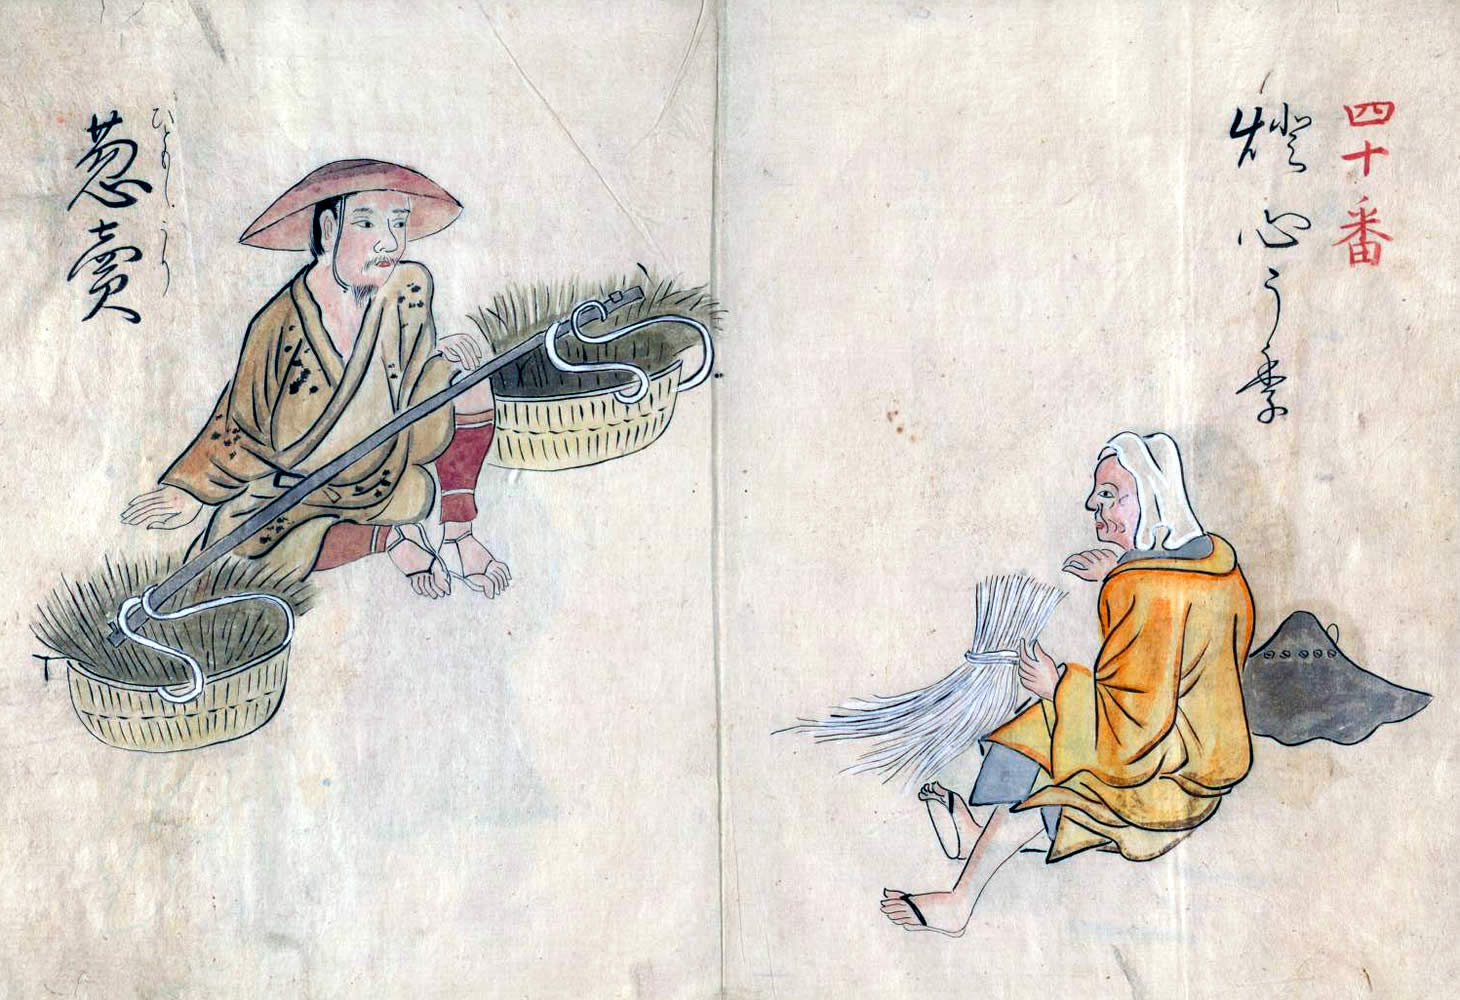 四十番
燈心うり
葱賣
ひともしうり